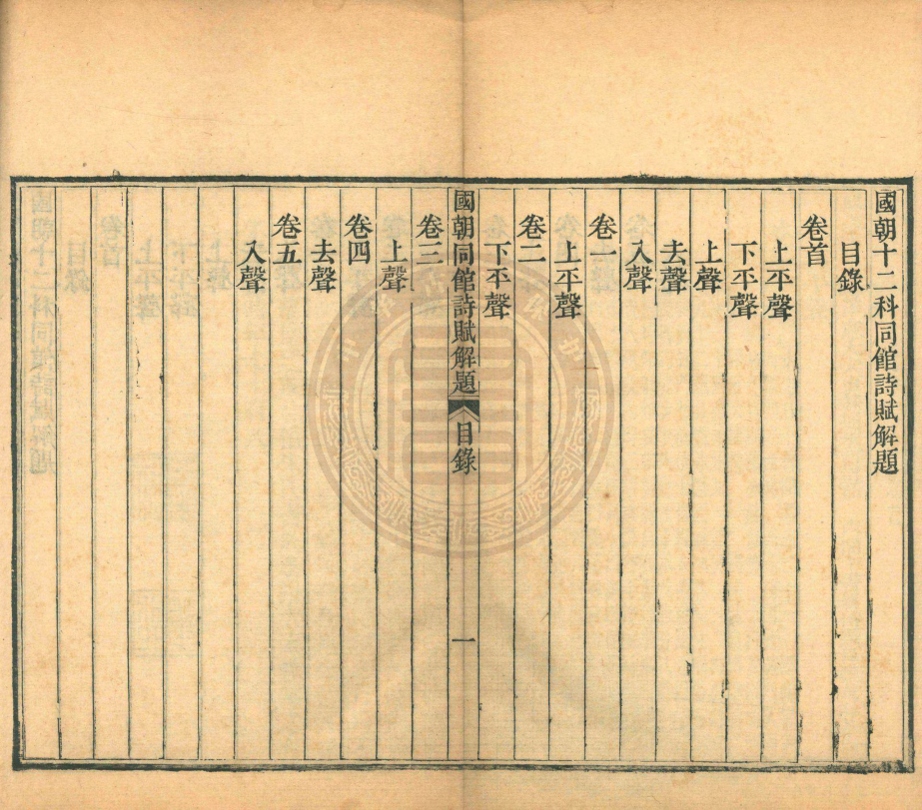 國朝十二科同館詩賦解題
目錄
卷首
上平聲
下平聲
上聲
去聲
入聲
卷一
上平聲
卷二
下平聲
國朝同館詩賦解題
目錄
一
卷三
上聲
卷四
去聲
卷五
入聲